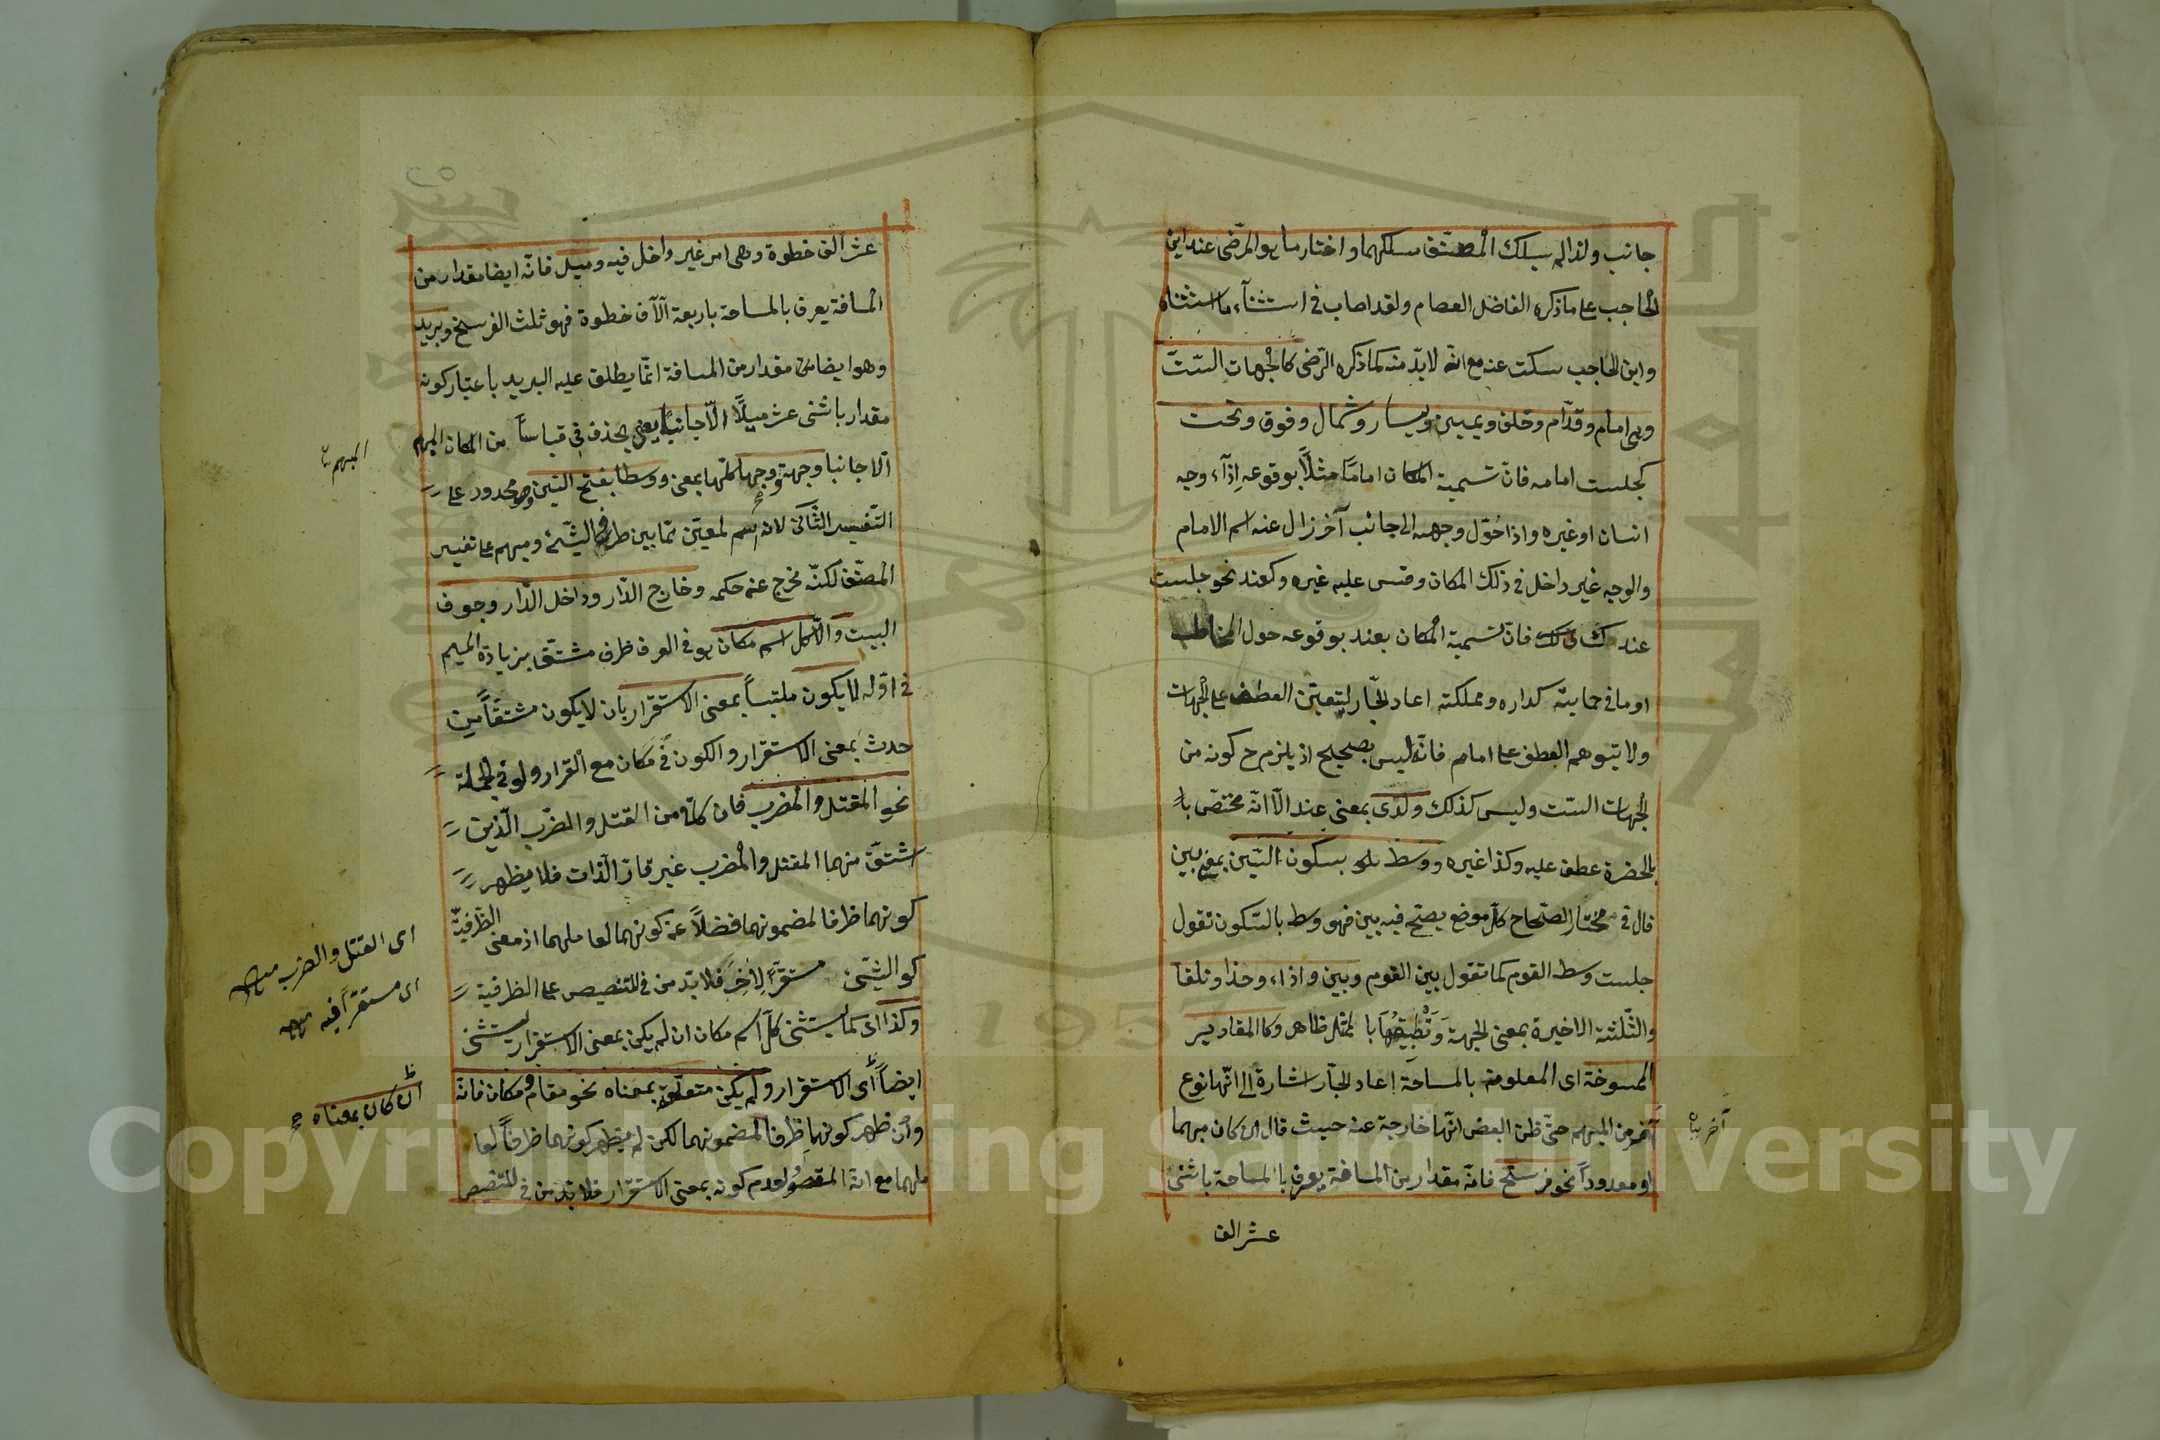 جانب ولذا لم يسلك المصنّف مسلكهما واختار ما هو المرّضى عند ابن
الحاجب على ما ذكره الفاضل العصام ولقد اصاب فى استثنآء ما استثناه
وابن الحاجب سكت عنه مع انّه لابدّ منه كما ذكره الرّضى كالجهات السّتّ
وهى امام وقدّام وخلف ويمين ويسار وشمال وفوق وتحت
كجلست امامه فانّ تسمية المكان اماما مثلاً بوقوعه إذآء وجه
انسان او غيره واذا حُوّل وجهه الى جانب آخر زال عنه اسم الامام
والوجه غير داخل فى ذلك المكان وقس عليه غيره وكعند نحو جلست
عندك فانّ تسمية المكان بعند بوقوعه حول المخاطب
او ما فى حمايته كداره ومملكته اعاد الجّار ليتعيّن العطف على الجهات
ولا يتوهم العطف على امام فانّه ليس بصحيح اذ يلزم ح كونه من
الجهات السّت وليس كذلك ولدى بمعنى عند الّا انّه مختصّ با
بالحضرة عطف عليه وكذا غيره ووسط بسكون السّين بمعنى بين
قال فى مختار الصّحاح كلّ موضع يصحّ فيه بين فهو وسط بالسّكون تقول
جلست وسط القوم كما تقول بين القوم وبين واذاء وحذا وتلقآ
والثّلثة الاخيرة بمعنى الجهة وَتَطْبِيقُهَا بالمثل ظاهر وكالمقادير
الممسوحة اى المعلومة بالمساحة اعاد الجّار اشارة الى انّها نوع
آخر من المبهم حتّى ظنّ البعض انّها خارجة عنه حيث قال ان كان مبهما
او معدوداً نحو فرسخ فانّه مقدار من المسافة يعرف بالمساحة باثنى
آخر
عشر الف
عشر الف خطوة وهى امر غير داخل فيه وميل فانّه ايضا مقدار من
المسافة يعرف بالمساحة باربعة آلآف خطوة فهو ثلث الفرسخ وبريد
وهو ايضا مقدار من المسافة انّما يطلق عليه البريد باعتبار كونه
مقدار باثنى عشر ميلًا الّا جانبا يعنى يحذف فى قياساً من المكان المبهم
الّا جانبا وجهة ووجها كلّها بمعنى ووسطا بفتح السّين وهو محدود على
التّفسير الثّانى لانه اسم لمعيّن ممّا بين طرفى الشّئ ومبهم على تفسير
المصنّف لكنّه مخرج عنه حكمه وخارج الدّار وداخل الدّار وجوف
البيت والّا كل اسم مكان هو فى العرف ظرف مشتقّ بزيادة الميم
فى اوّله لا يكون ملتبساً بمعنى الاستقرار بان لا يكون مشتقًّا من
حدث بمعنى الاستقرار والكون فى مكان مع القرار ولو فى الجملة
نحو المقتل والمضرب فان كلّا من القتل والضّرب الّذين
اشتقّ منهما المقتل والمضرب غير قارّ الّذات فلا يظهر
كونهما ظرفا لمضمونهما فضلاً عن كونهما لعاملهما اذ معنى الظّرفيّة
كو الشّئ مستقرّاً لآخر فلابد من فى للتنصيص على الظرفية
وكذا اى كما يستثنى كلّ اسم مكان ان لم يكن بمعنى الاستقرار يستثنى
ايضاً اى الاستقرار ولم يكن متعلّقه بمعناه نحو مقام ومكان فانّه
وان ظهر كونهما ظرفا لمضمونهما لكن لم يظهر كونهما ظرفاً لعا
ملهما مع انّه المقصُود لعدم كونه بمعنى الاستقرار فلابدّ من فى للتنصيص
المبهم
اى القتل والضرب
اى مستقرّاً فيه
ان كان بمعناه
Copyright © King Saud University
1957